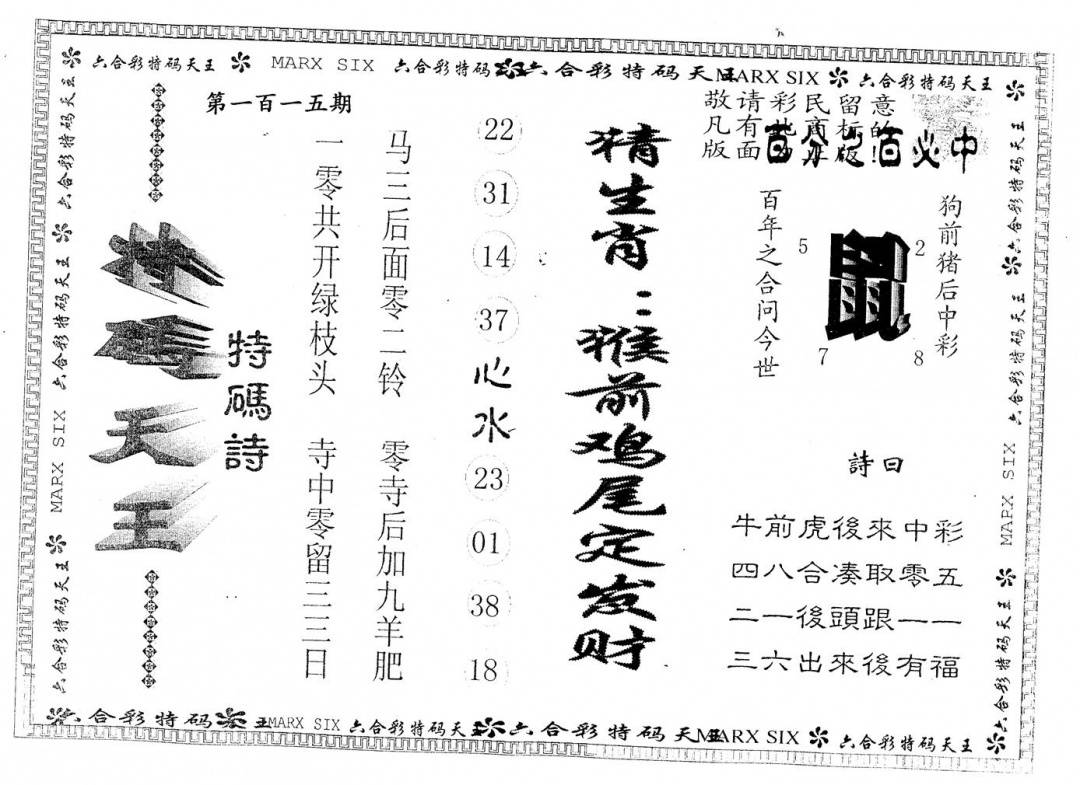 六合彩特码天王 MARX SIX 六合彩特码 六合彩特码天王 MARX SIX 六合彩特码天王
第一百一十五期
特碼天王
特碼詩
一零共开绿枝头 寺中零留三三日
马三后面零二铃 零寺后加九羊肥
22
31
14
37
心水
23
01
38
18
猜生肖：猴前鸡尾定发财
敬请彩民留意
凡有此商标的
版面
百分之百必中
百年之合问今世
5
鼠
2
7
8
狗前猪后中彩
詩曰
牛前虎後來中彩
四八合凑取零五
二一後頭跟一一
三六出來後有福
六合彩特码天王 MARX SIX 六合彩特码天王
六合彩特码天王 MARX SIX 六合彩特码天王
六合彩特码 MARX SIX 六合彩特码天王 六合彩特码天王 MARX SIX 六合彩特码天王